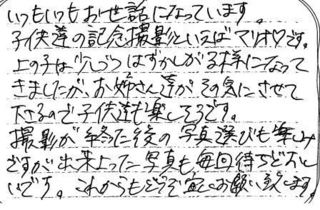 いつもいつもお世話になっています。
子供達の記念撮影といえばマリオ♡です。
上の子は少しづつはずかしがる様になって
きましたが、お姉さん達がその気にさせて
下さるので子供達も楽しそうです。
撮影が終った後の写真選びも楽しみ
ですが出来上った写真も毎回待ちどおし
いです。これからもどうぞ宜しくお願い致します。